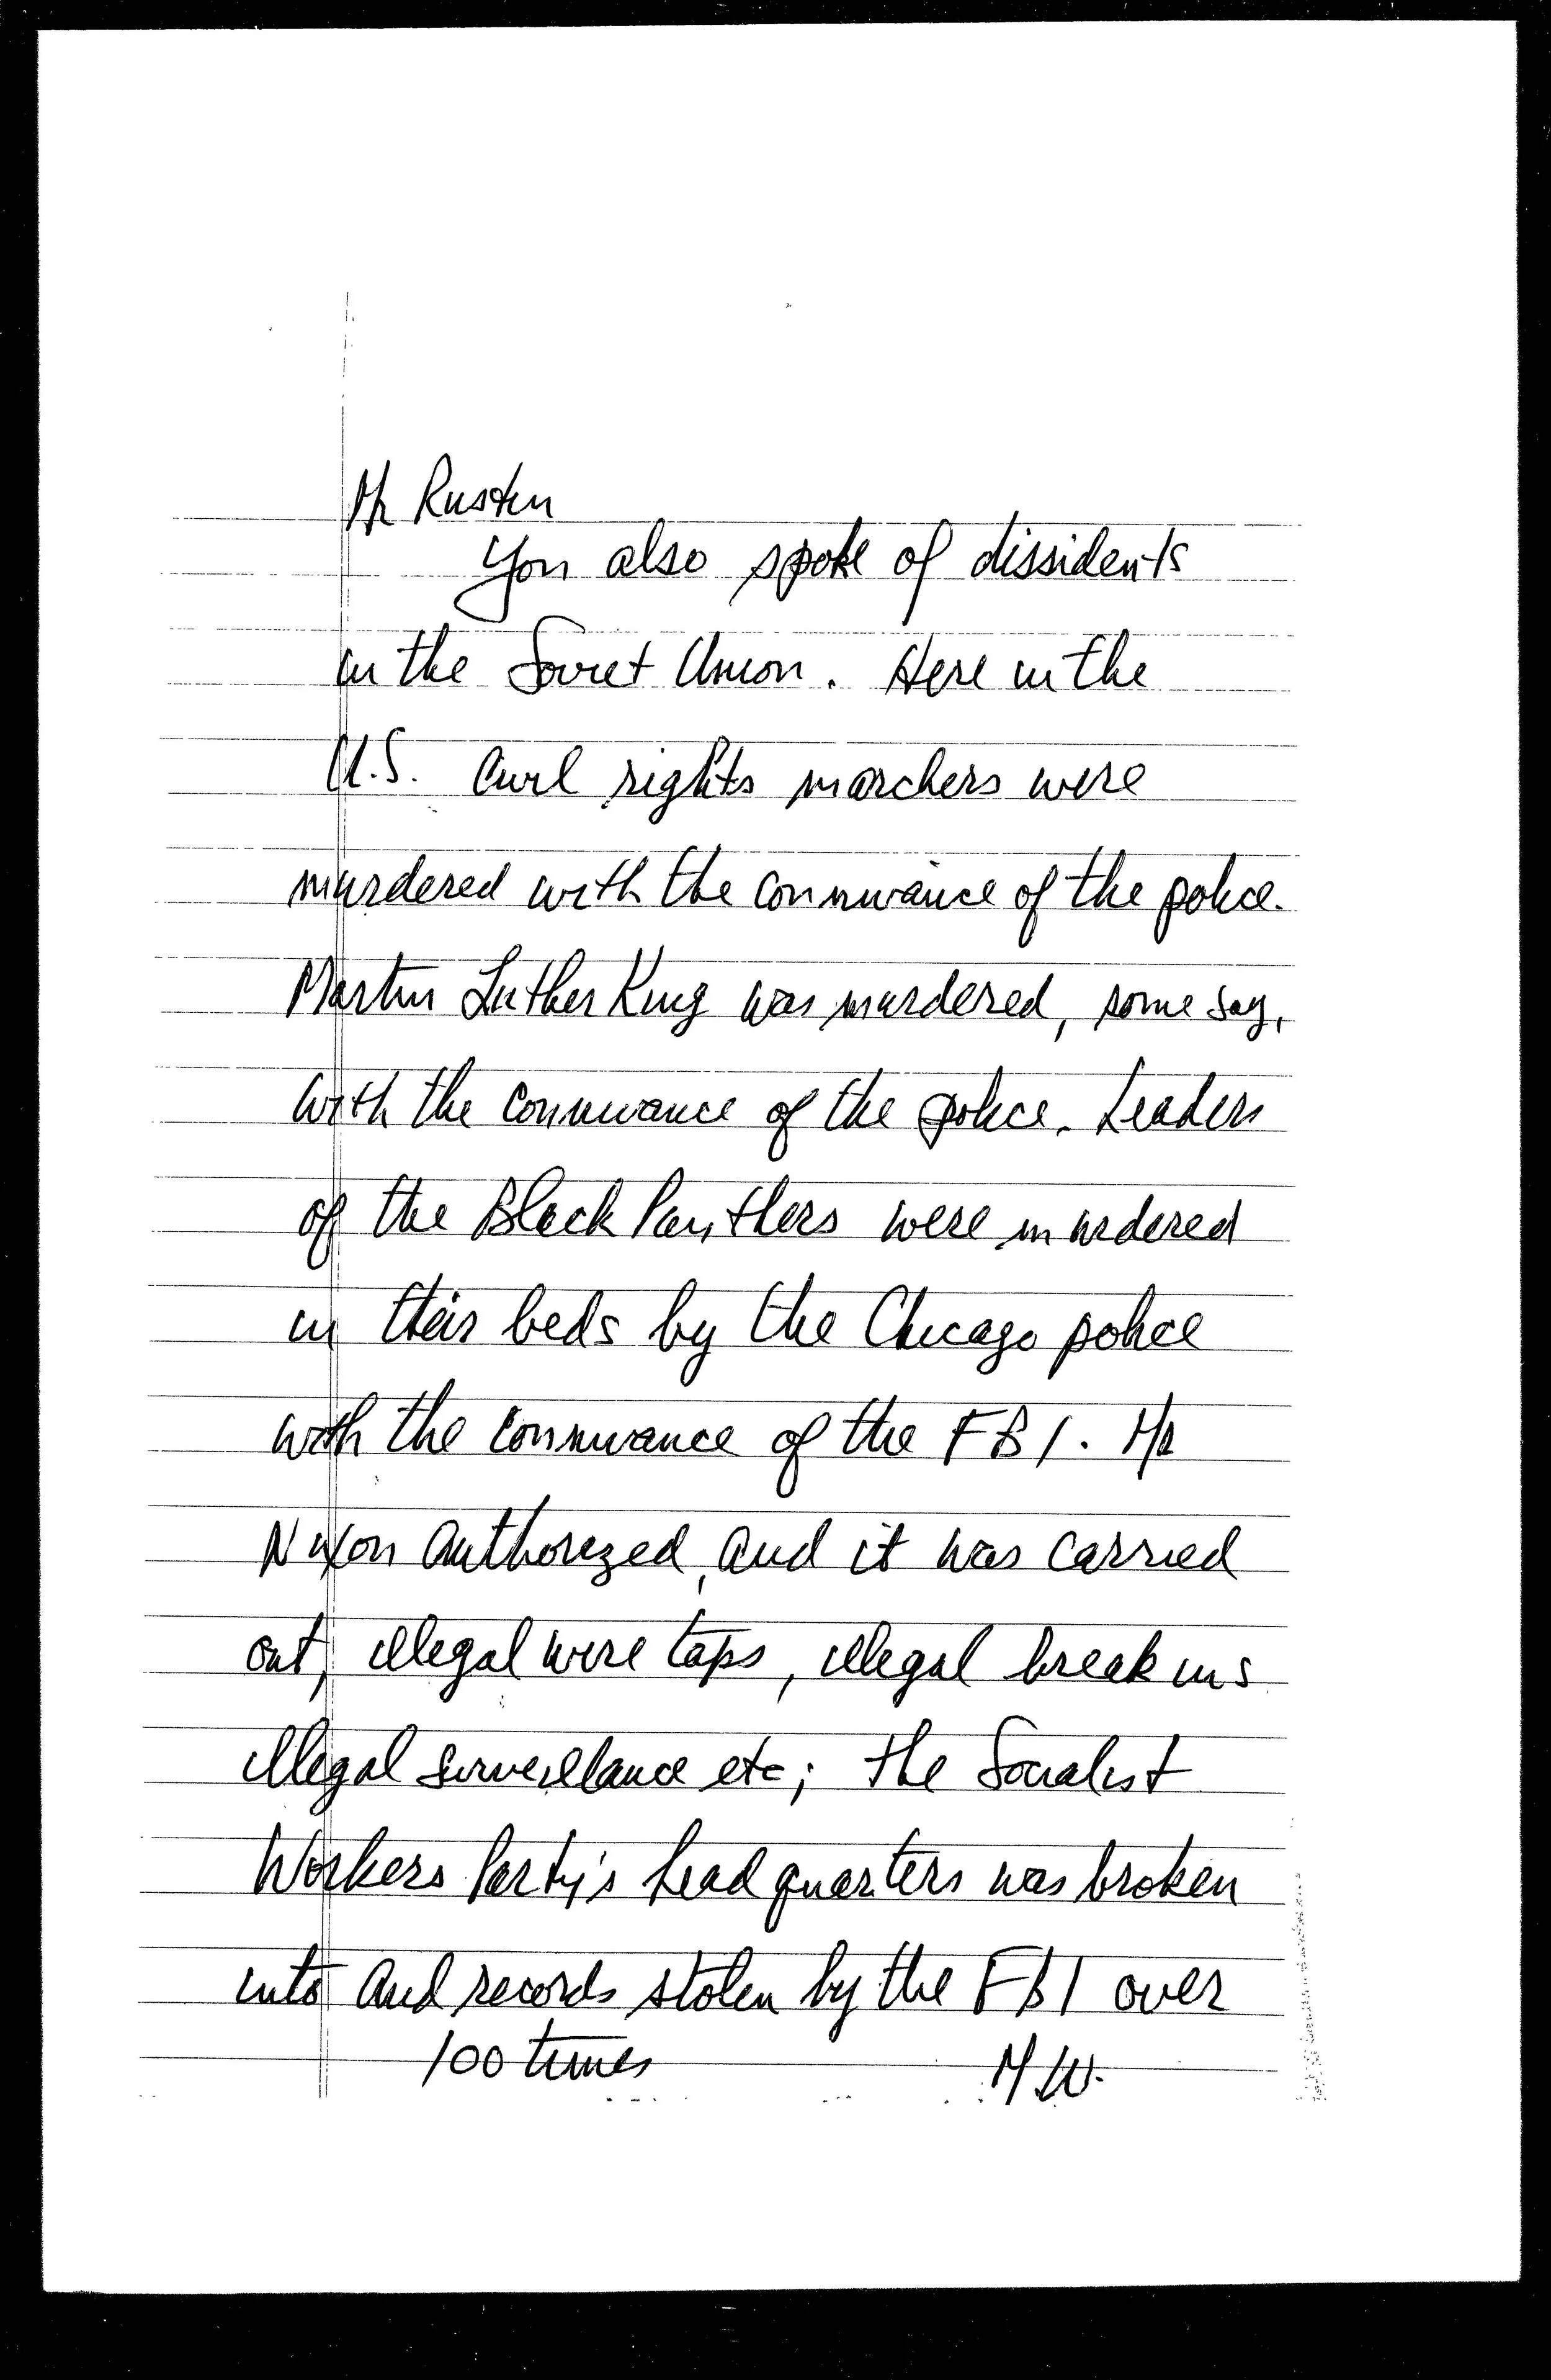 Mr Rustin
You also spoke of dissidents
in the Soviet Union. Here in the
U.S. Civil rights marchers were
murdered with the connivance of the police.
Martin Luther King was murdered, some say,
with the connivance of the police. Leaders
of the Black Panthers were murdered
in their beds by the Chicago police
with the connivance of the FBI. Mr
Nixon authorized, and it was carried
out, illegal wire taps, illegal break ins
illegal surveillance etc; the Socialist
Workers Party's head quarters was broken
into and records stolen by the FBI over
100 times M.W.